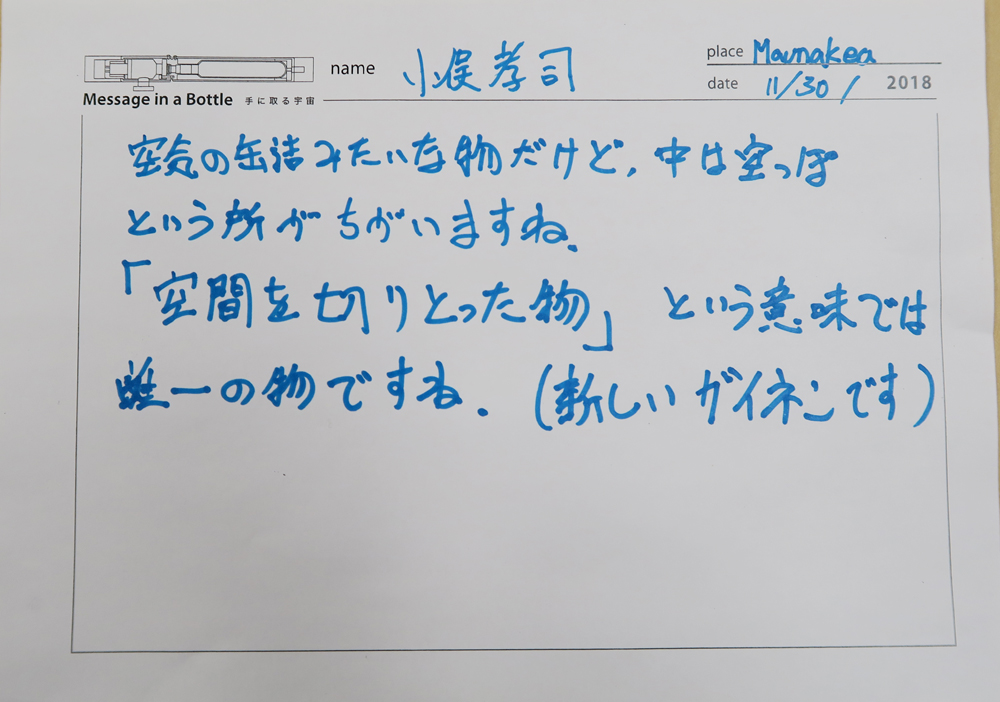 name 小俣孝司
place Maunakea
date 11/30/ 2018
Message in a Bottle 手に取る宇宙
空気の缶詰みたいな物だけど,中は空っぽ
という所がちがいますね.
「空間を切りとった物」という意味では
唯一の物ですね.(新しいガイネンです)